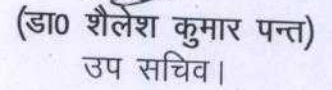 (डा0 शैलेश कुमार पन्त)
उप सचिव।